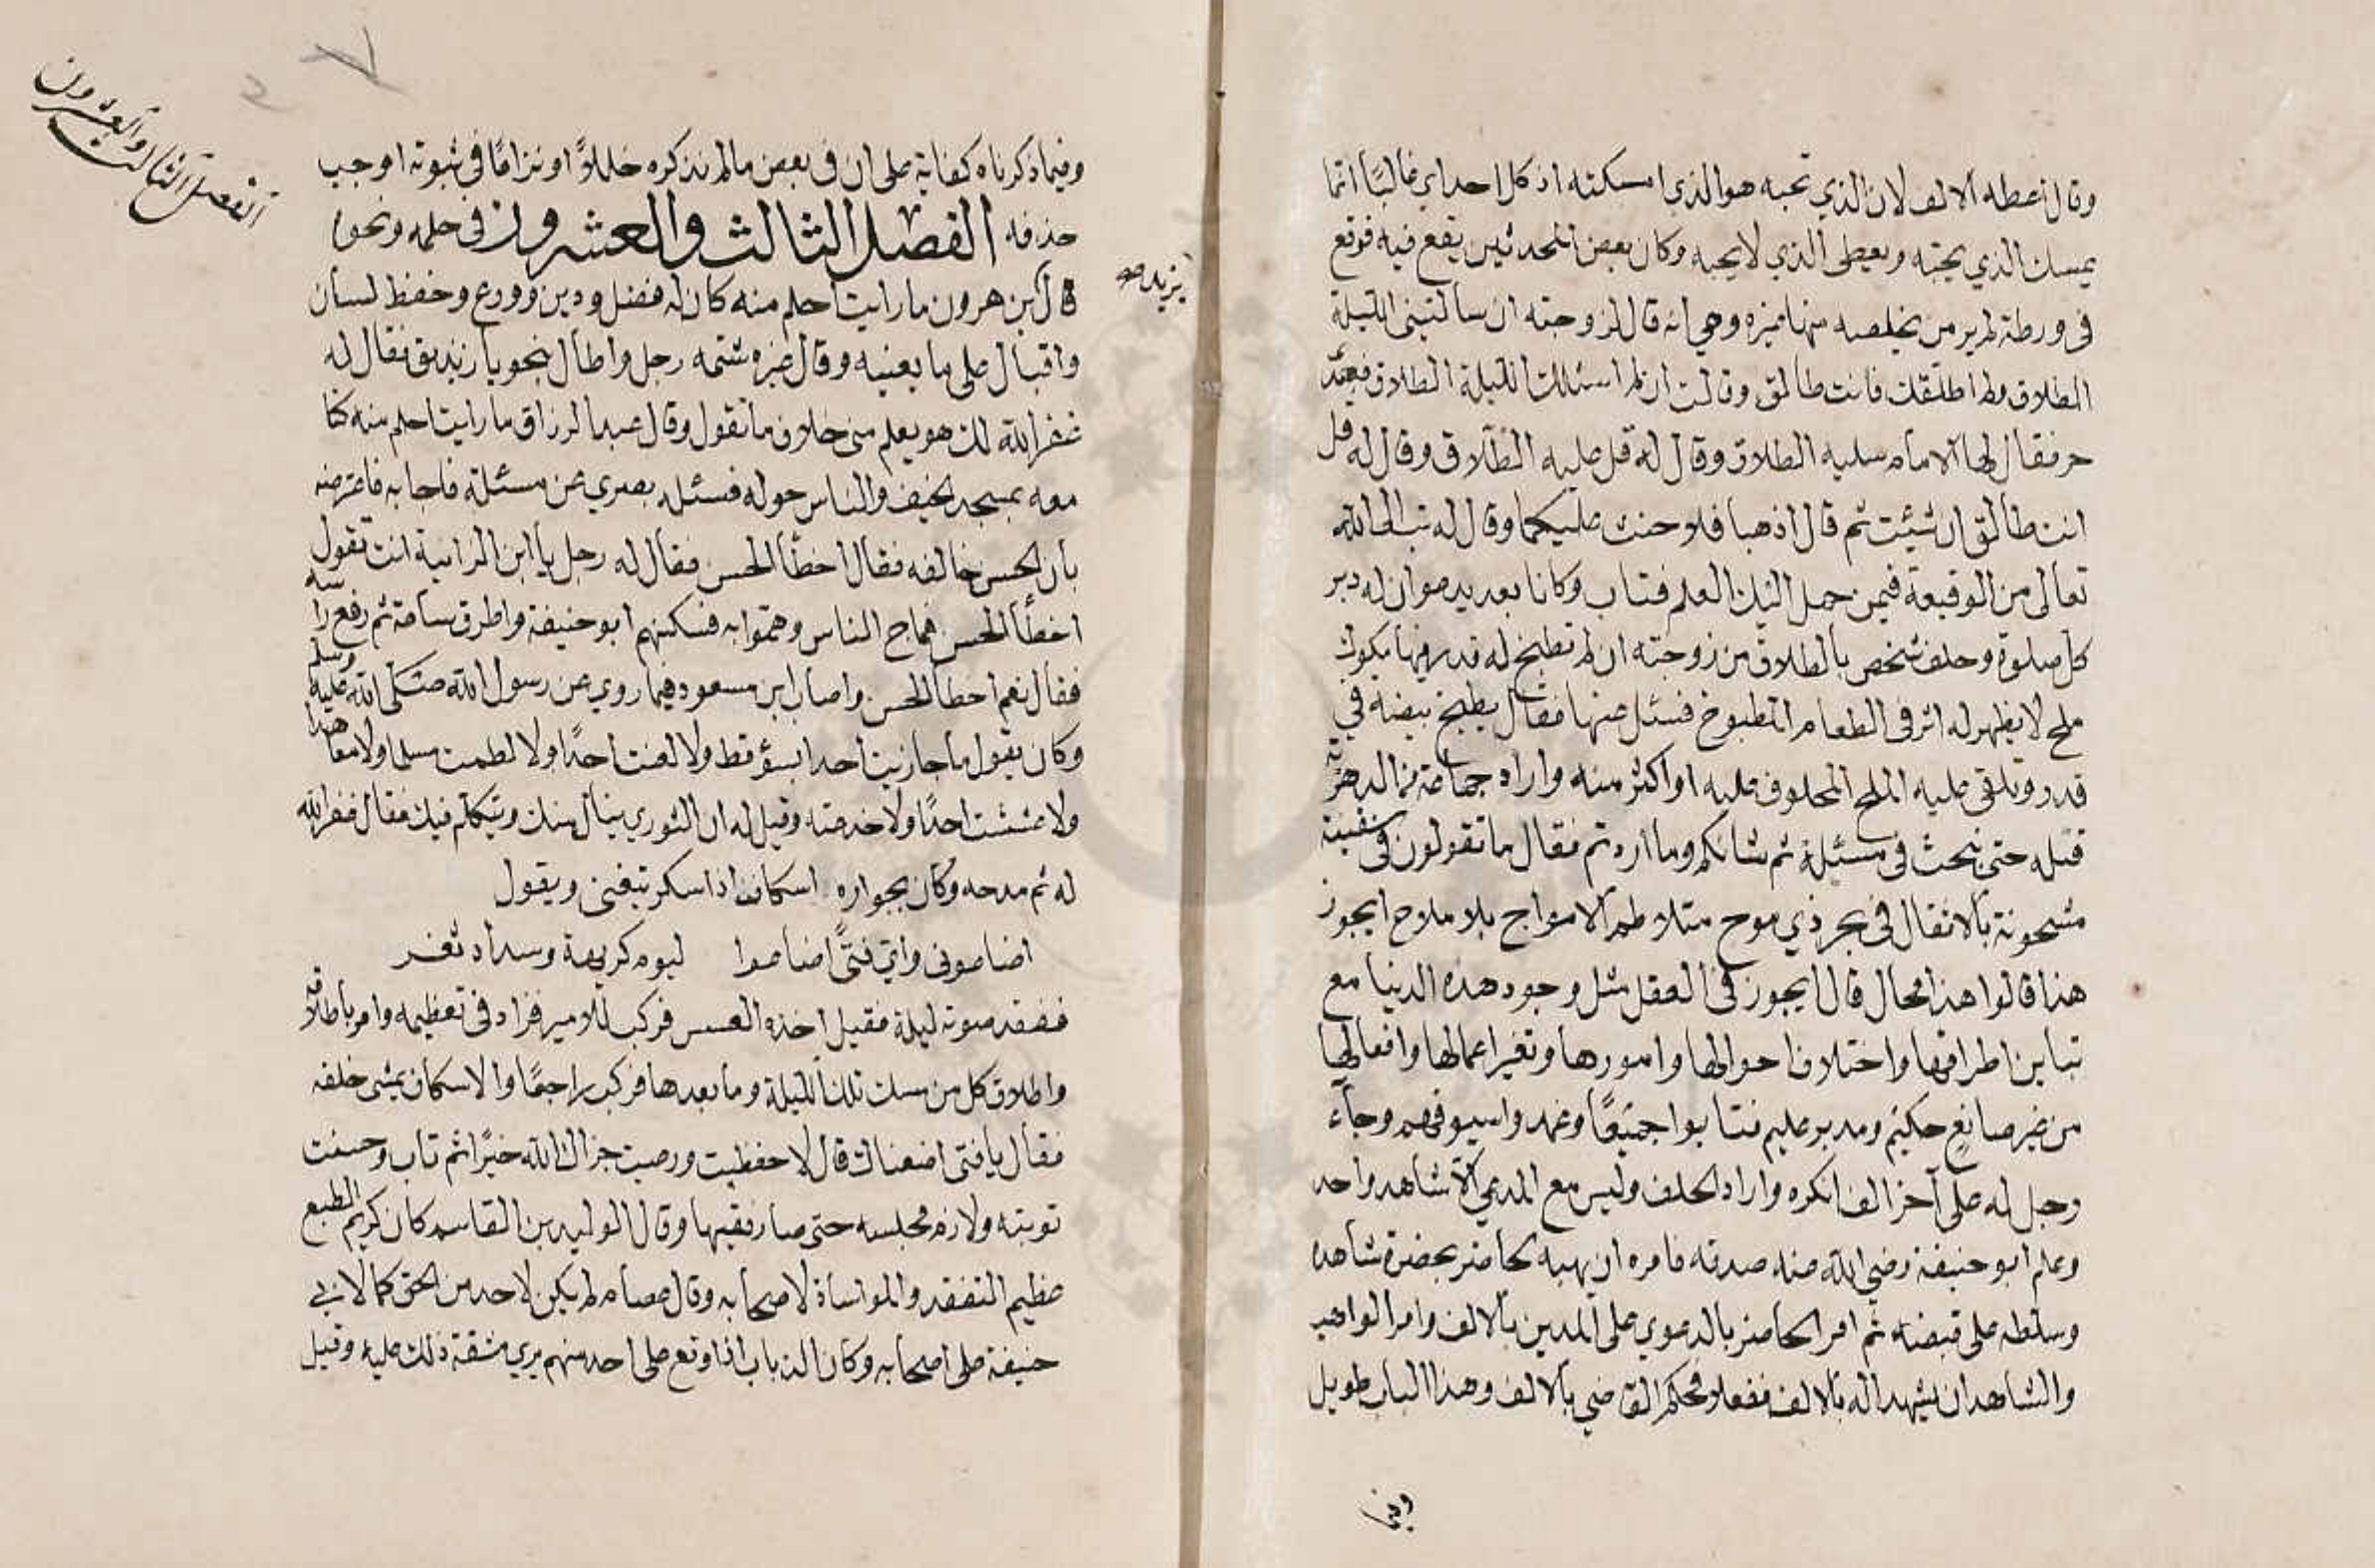 وقال اعطه الالف لان الذي تحبه هو الذي امسكته اذ كل احد اي غالبًا انما
يمسك الذي يحبّه ويعطى الذي لا يحبه وكان بعض المحدثين يقع فيه فوقع
فى ورطة لم ير من يخلصه منها غيره وهي انه قال لزوجته ان سالتينى الليلة
الطلاق ولم اطلّقك فانت طالق وقالت ان لم اسئلك الليلة الطلاق فعبدى
حر فقال لها الامام سليه الطلاق وقال له قل عليه الطلاق وقال له قل
انت طالق ان شئت ثم قال اذهبا فلا حنث عليكما وقال له تب الى الله
تعالى من الوقيعة فيمن حمل اليك العلم فتاب وكانا بعد يدعوان له دبر
كل صلوة وحلف شخص بالطلاق من زوجته ان لم تطبخ له قدر فيها مكوك
ملح لا يظهر له اثر فى الطعام المطبوخ فسئل عنها فقال يطبخ بيضة في
قدر وتلقى عليه الملح المحلوف عليه او اكثر منه واراد جماعة من الدهرية
قتله حتى نبحث فى مسئلة ثم شانكم وما اردتم فقال ما تقولون فى سفينة
مشحونة بالاثقال فى بحر ذي موج متلاطم الامواج بلا ملاح ايجوز
هذا قالوا هذا محال قال ايجوز فى العقل مثل وجود هذه الدنيا مع
تباين اطرافها واختلاف احوالها وامورها وتغير اعمالها وافعالها
من غير صانع حكيم ومدبر عليم فتابوا جميعًا وغمدوا سيوفهم وجاء
رجل له على آخر الف انكره واراد الحلف وليس مع المدعي الا شاهد واحد
وعلم ابو حنيفة رضي الله عنه صدقه فامره ان يهبه لحاضر بحضرة شاهد
وسلطه على قبضه ثم امر الحاضر بالدعوي على المدين بالالف وامر الواهب
والشاهد ان يشهدا له بالالف ففعلا فحكم القاضي بالالف وهذا الباب طويل
وفيما
الفصل الثالث والعشرون
وفيما ذكرناه كفاية على ان فى بعض ما لم نذكره خللاً او نزامًا فى ثبوته اوجب
حذفه الفصل الثالث والعشرون فى حلمه ونحوه
يزيد صح
قال ابن هرون ما رايت احلم منه كان له فضل ودين وورع وحفظ لسان
واقبال على ما يعنيه وقال غيره شتمه رجل واطال بنحو يا زنديق فقال له
غفر الله لك هو يعلم منى خلاف ما تقول وقال عبد الرزاق ما رايت احلم منه كنا
معه بمسجد الخيف والناس حوله فسئله بصري عن مسئلة فاجابه فاعترضه
بان الحسن خالفه فقال اخطأ الحسن فقال له رجل يا ابن الزانية انت تقول
اخطأ الحسن فماج الناس وهمّوا به فسكنهم ابو حنيفة واطرق ساعة ثم رفع راسه
فقال نعم اخطأ الحسن واصاب ابن مسعود فيما روي عن رسول الله صلى الله عليه وسلم
وكان يقول ما جازيت احدا بسؤ قط ولا لعنت احدًا ولا لطمت مسلما ولا معاهدا
ولا غششت احدًا ولا خدعته وقيل له ان الثوري ينال منك ويتكلم فيك فقال غفر الله
له ثم مدحه وكان بجواره اسكاف اذا سكر تيغنى ويقول
اضاعونى وأي فتىً اضاعوا ليوم كريهة وسداد ثغر
ففقد صوته ليلة فقيل اخذه العسس فركب للامير فزاد فى تعظيمه وامر باطلاقه
واطلاق كل من مسك تلك الليلة وما بعدها فركب راجعًا والاسكاف يمشى خلفه
فقال يا فتى اضعناك قال لا حفظت ورعيت جزاك الله خيرًا ثم تاب وحسنت
توبته ولازم مجلسه حتى صار فقيها وقال الوليد بن القاسم كان كريم الطبع
عظيم التفقد والمواساة لاصحابه وقال عصام لم يكن لاحد من الحق كما لابي
حنيفة على اصحابه وكان الذباب اذا وقع على احد منهم يري مشقة ذلك عليه وقيل